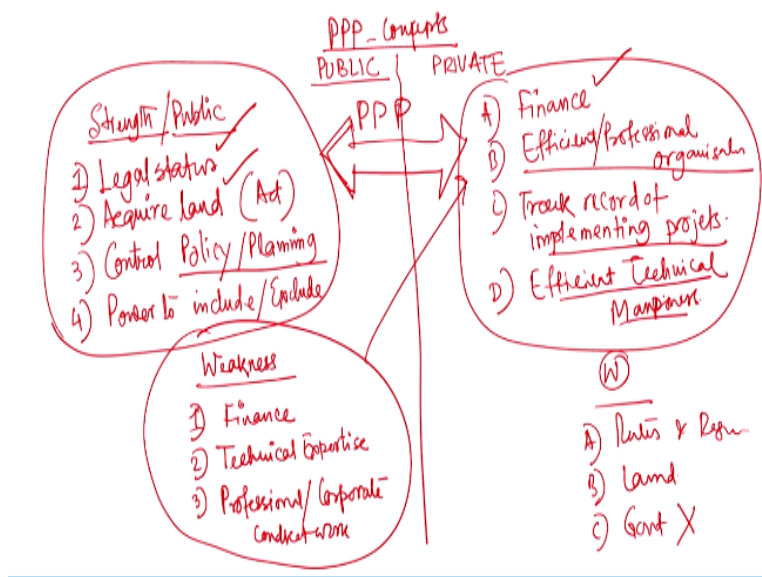 PPP_Concepts
PUBLIC PRIVATE
PPP
Strength/Public
1) Legal status
2) Acquire land (Act)
3) Control Policy/Planing
4) Power to include/Exclude
Weakness
1) Finance
2) Technical Expertise
3) Professional/Corporate
Conduct work
A) Finance
B) Efficient/Professional
organisation
C) Track record of
implementing projets.
D) Efficient Technical
Manpower
W
A) Rules & Regu
B) Land
C) Govt X